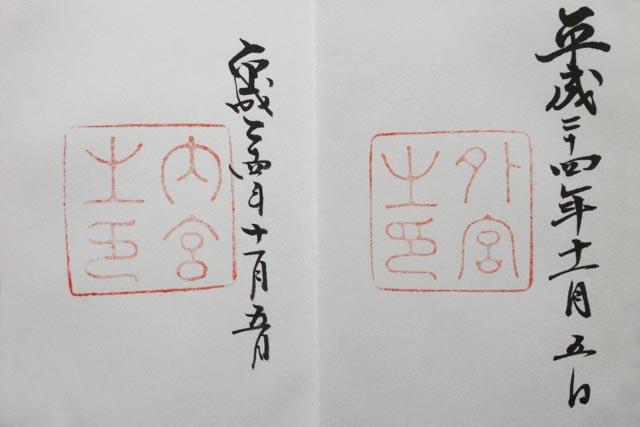 平成二十四年十一月五日
外宮
之印
平成二十四年十一月五日
内宮
之印